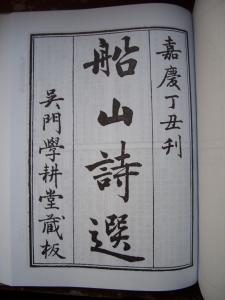 嘉慶丁丑刊
船山詩選
吳門學耕堂藏板